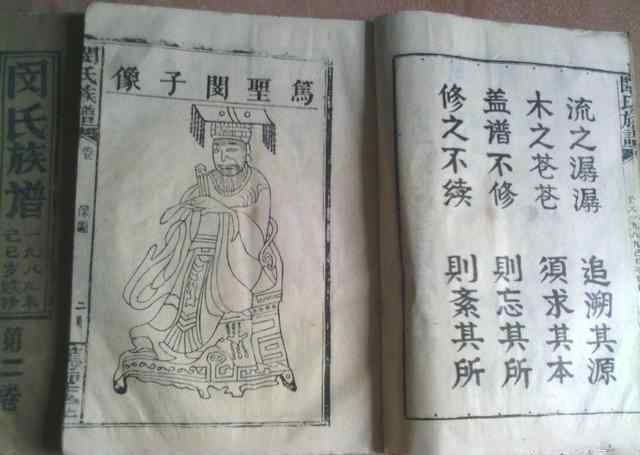 闵氏族谱
一九八九年
己巳岁
第二卷
閔氏族譜
卷
篤聖閔子像
流之潺潺 追溯其源
木之苍苍 須求其本
盖谱不修 則忘其所
修之不续 則紊其所